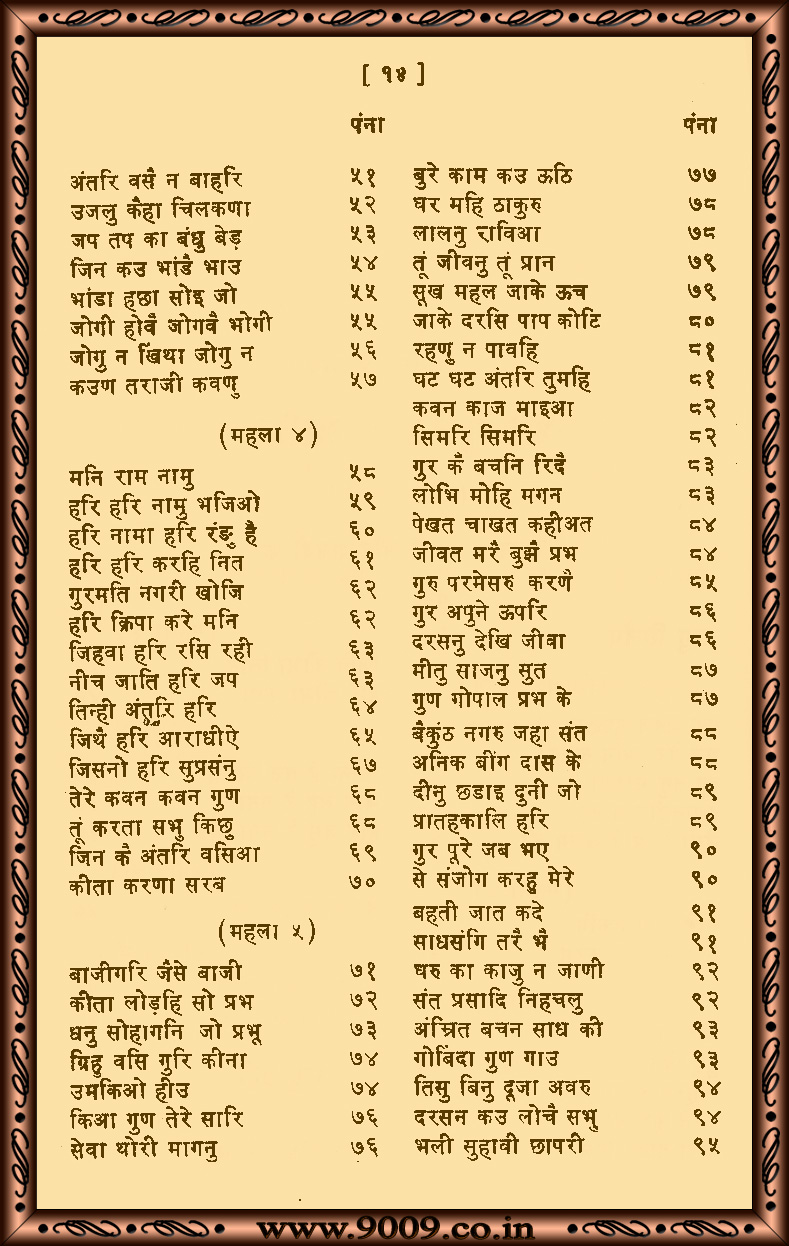 [ १४ ]
पंना
अंतरि वसै न बाहरि ५१
उजलु कैहा चिलकणा ५२
जप तप का बंधु बेड़ ५३
जिन कउ भांडै भाउ ५४
भांडा हछा सोइ जो ५५
जोगी होवै जोगवै भोगी ५५
जोगु न खिंथा जोगु न ५६
कउण तराजी कवणु ५७
(महला ४)
मनि राम नामु ५८
हरि हरि नामु भजिओ ५९
हरि नामा हरि रंङु है ६०
हरि हरि करहि नित ६१
गुरमति नगरी खोजि ६२
हरि क्रिपा करे मनि ६२
जिहवा हरि रसि रही ६३
नीच जाति हरि जप ६३
तिन्ही अंतरि हरि ६४
जिथै हरि आराधीऐ ६५
जिसनो हरि सुप्रसंनु ६७
तेरे कवन कवन गुण ६८
तूं करता सभु किछु ६८
जिन कै अंतरि वसिआ ६९
कीता करणा सरब ७०
(महला ५)
बाजीगरि जैसे बाजी ७१
कीता लोड़हि सो प्रभ ७२
धनु सोहागनि जो प्रभू ७३
ग्रिहु वसि गुरि कीना ७४
उमकिओ हीउ ७४
किआ गुण तेरे सारि ७६
सेवा थोरी मागनु ७६
पंना
बुरे काम कउ ऊठि ७७
घर महि ठाकुरु ७८
लालनु राविआ ७८
तूं जीवनु तूं प्रान ७९
सूख महल जाके ऊच ७९
जाके दरसि पाप कोटि ८०
रहणु न पावहि ८१
घट घट अंतरि तुमहि ८१
कवन काज माइआ ८२
सिमरि सिमरि ८२
गुर कै बचनि रिदै ८३
लोभि मोहि मगन ८३
पेखत चाखत कहीअत ८४
जीवत मरै बुझै प्रभ ८४
गुरु परमेसरु करणै ८५
गुर अपुने ऊपरि ८६
दरसनु देखि जीवा ८६
मीतु साजनु सुत ८७
गुण गोपाल प्रभ के ८७
बैकुंठ नगरु जहा संत ८८
अनिक बींग दास के ८८
दीनु छडाइ दुनी जो ८९
प्रातहकालि हरि ८९
गुर पूरे जब भए ९०
से संजोग करहु मेरे ९०
बहती जात कदे ९१
साधसंगि तरै भै ९१
घरु का काजु न जाणी ९२
संत प्रसादि निहचलु ९२
अंम्रित बचन साध की ९३
गोबिंदा गुण गाउ ९३
तिसु बिनु दूजा अवरु ९४
दरसन कउ लोचै सभु ९४
भली सुहावी छापरी ९५
www.9009.co.in